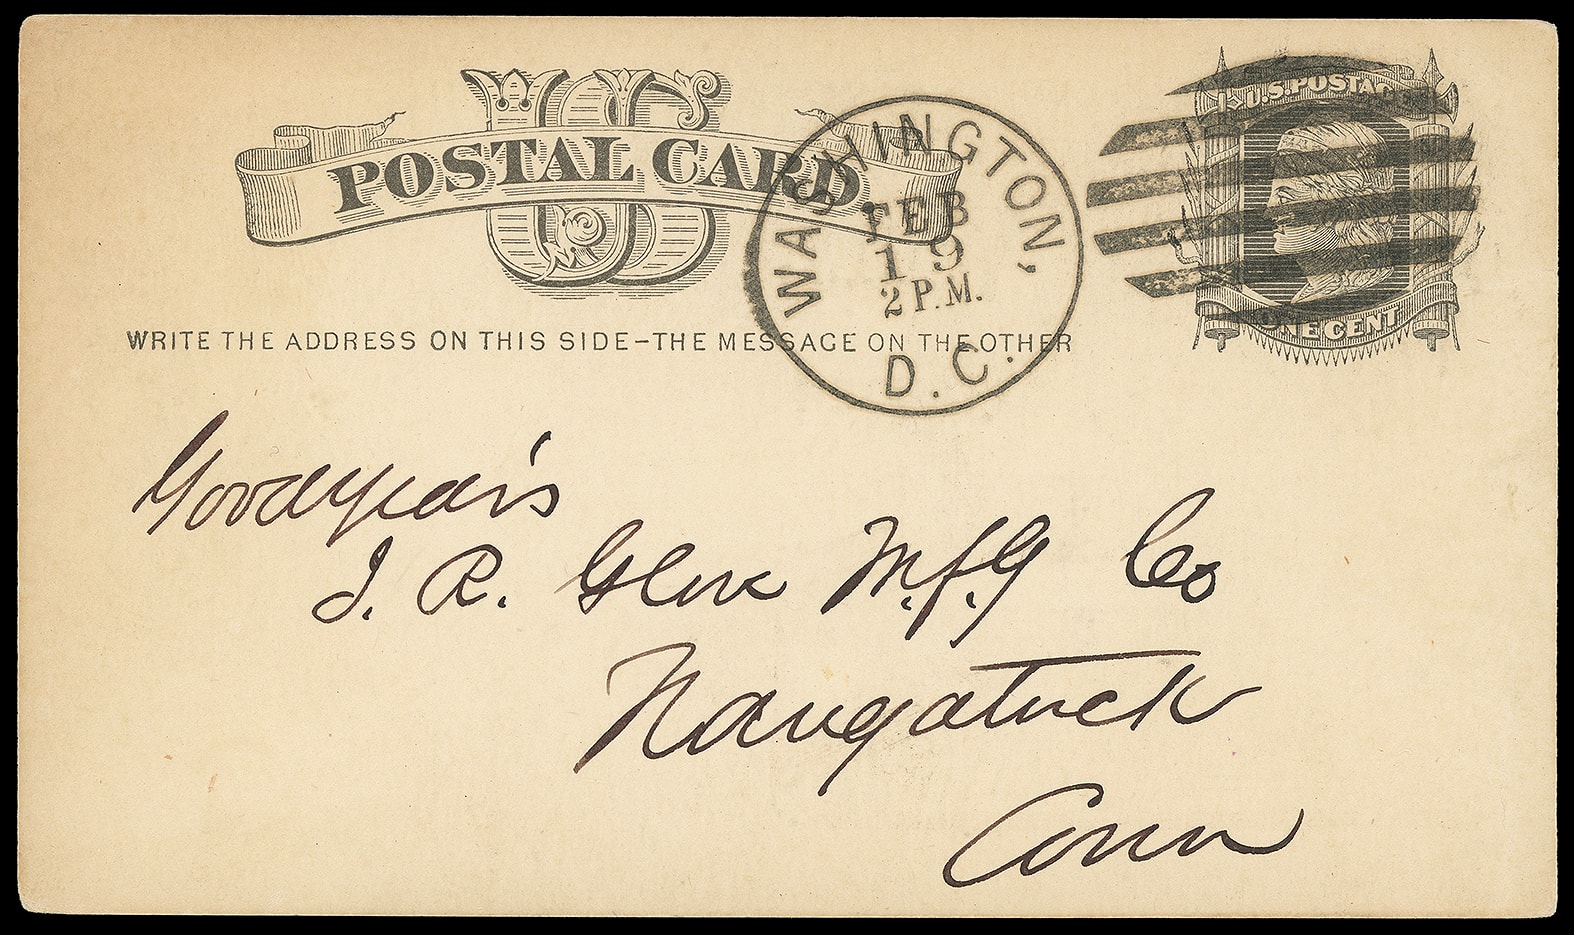 US
POSTAL CARD
WRITE THE ADDRESS ON THIS SIDE–THE MESSAGE ON THE OTHER
WASHINGTON,
FEB
19
2 P.M.
D.C.
U.S. POSTAGE
ONE CENT
Goodyear's
I. R. Glove M.f.g Co
Naugatuck
Conn